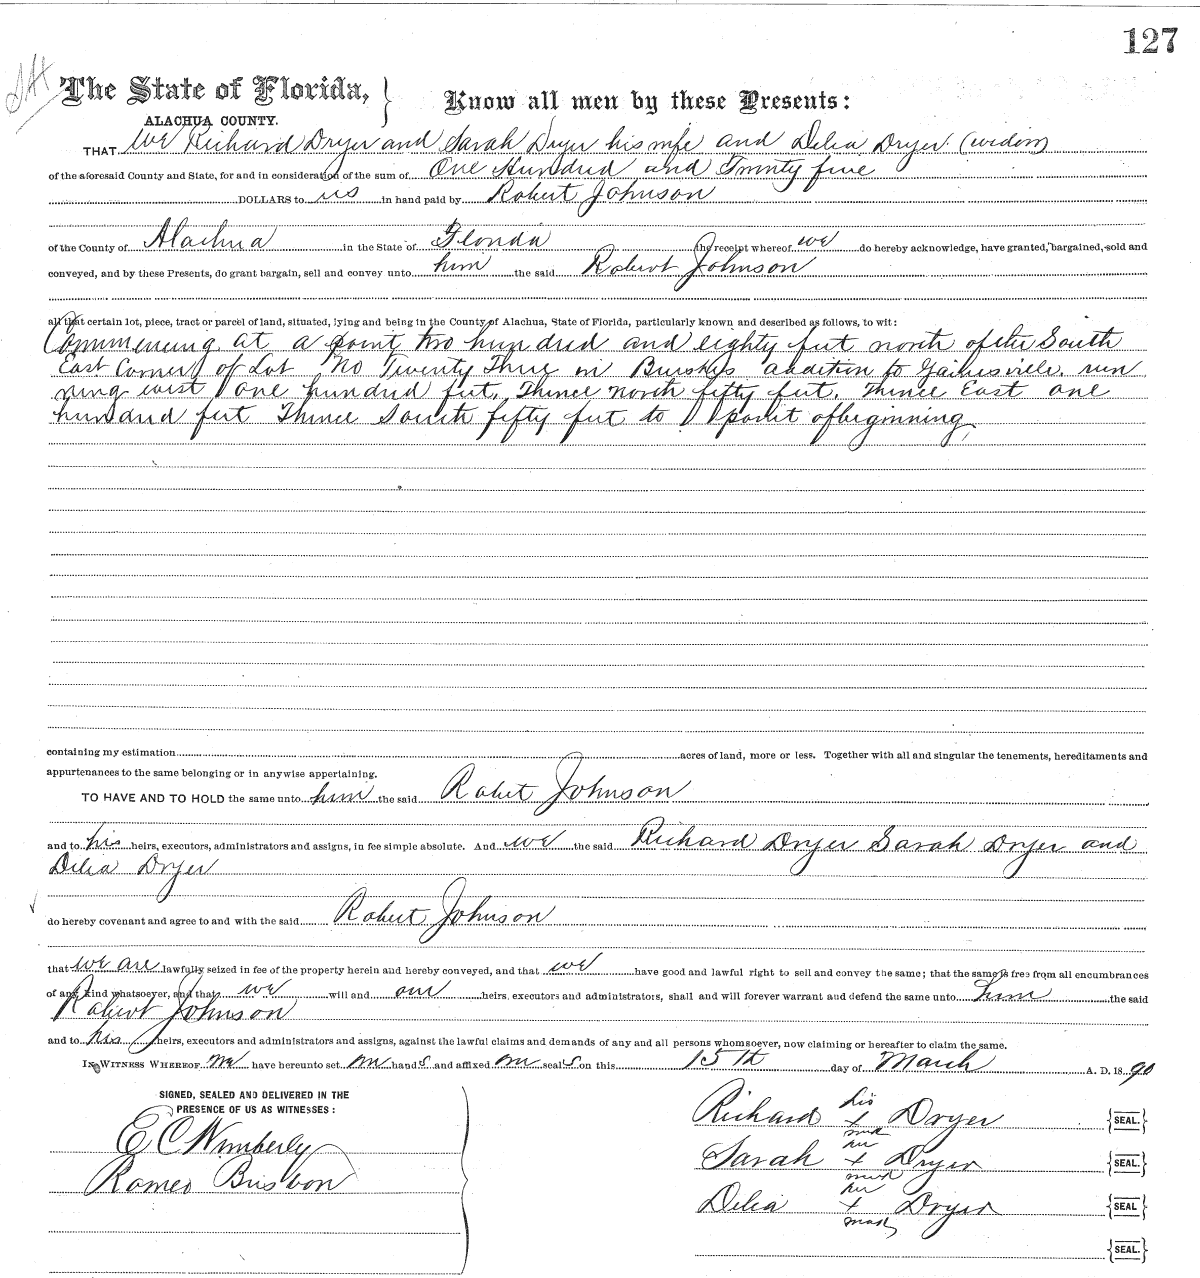 127
The State of Florida,
ALACHUA COUNTY.
Know all men by these Presents:
THAT We Richard Dryer and Sarah Dryer his wife and Delia Dryer (widow)
of the aforesaid County and State, for and in consideration of the sum of One Hundred and Twenty five
DOLLARS to us in hand paid by Robert Johnson
of the County of Alachua in the State of Florida the receipt whereof we do hereby acknowledge, have granted, bargained, sold and
conveyed, and by these Presents, do grant bargain, sell and convey unto him the said Robert Johnson
all that certain lot, piece, tract or parcel of land, situated, lying and being in the County of Alachua, State of Florida, particularly known and described as follows, to wit:
Commencing at a point two hundred and eighty feet north of the South
East Corner of Lot No Twenty Three in addition to Gainesville. run
ning west one hundred feet, Thence north fifty feet. Thence East one
hundred feet Thence South fifty feet to point of beginning,
containing my estimation acres of land, more or less. Together with all and singular the tenements, hereditaments and
appurtenances to the same belonging or in anywise appertaining.
TO HAVE AND TO HOLD the same unto him the said Robert Johnson
and to his heirs, executors, administrators and assigns, in fee simple absolute. And we the said Richard Dryer Sarah Dryer and
Delia Dryer
do hereby covenant and agree to and with the said Robert Johnson
that we are lawfully seized in fee of the property herein and hereby conveyed, and that we have good and lawful right to sell and convey the same; that the same is free from all encumbrances
of any kind whatsoever, and that we will and our heirs, executors and administrators, shall and will forever warrant aud defend the same unto him the said
Robert Johnson
and to his heirs, executors and administrators and assigns, against the lawful claims and demands of any and all persons whomsoever, now claiming or hereafter to claim the same.
IN WITNESS WHEREOF we have hereunto set our hands and affixed our seals on this 15th day of March A. D. 1890
SIGNED, SEALED AND DELIVERED IN THE
PRESENCE OF US AS WITNESSES:
E C Wimberly
Romeo Brisbon
his
Richard + Dryer {SEAL.}
mark
her
Sarah + Dryer {SEAL.}
mark
her
Delia + Dryer {SEAL.}
mark
{SEAL.}